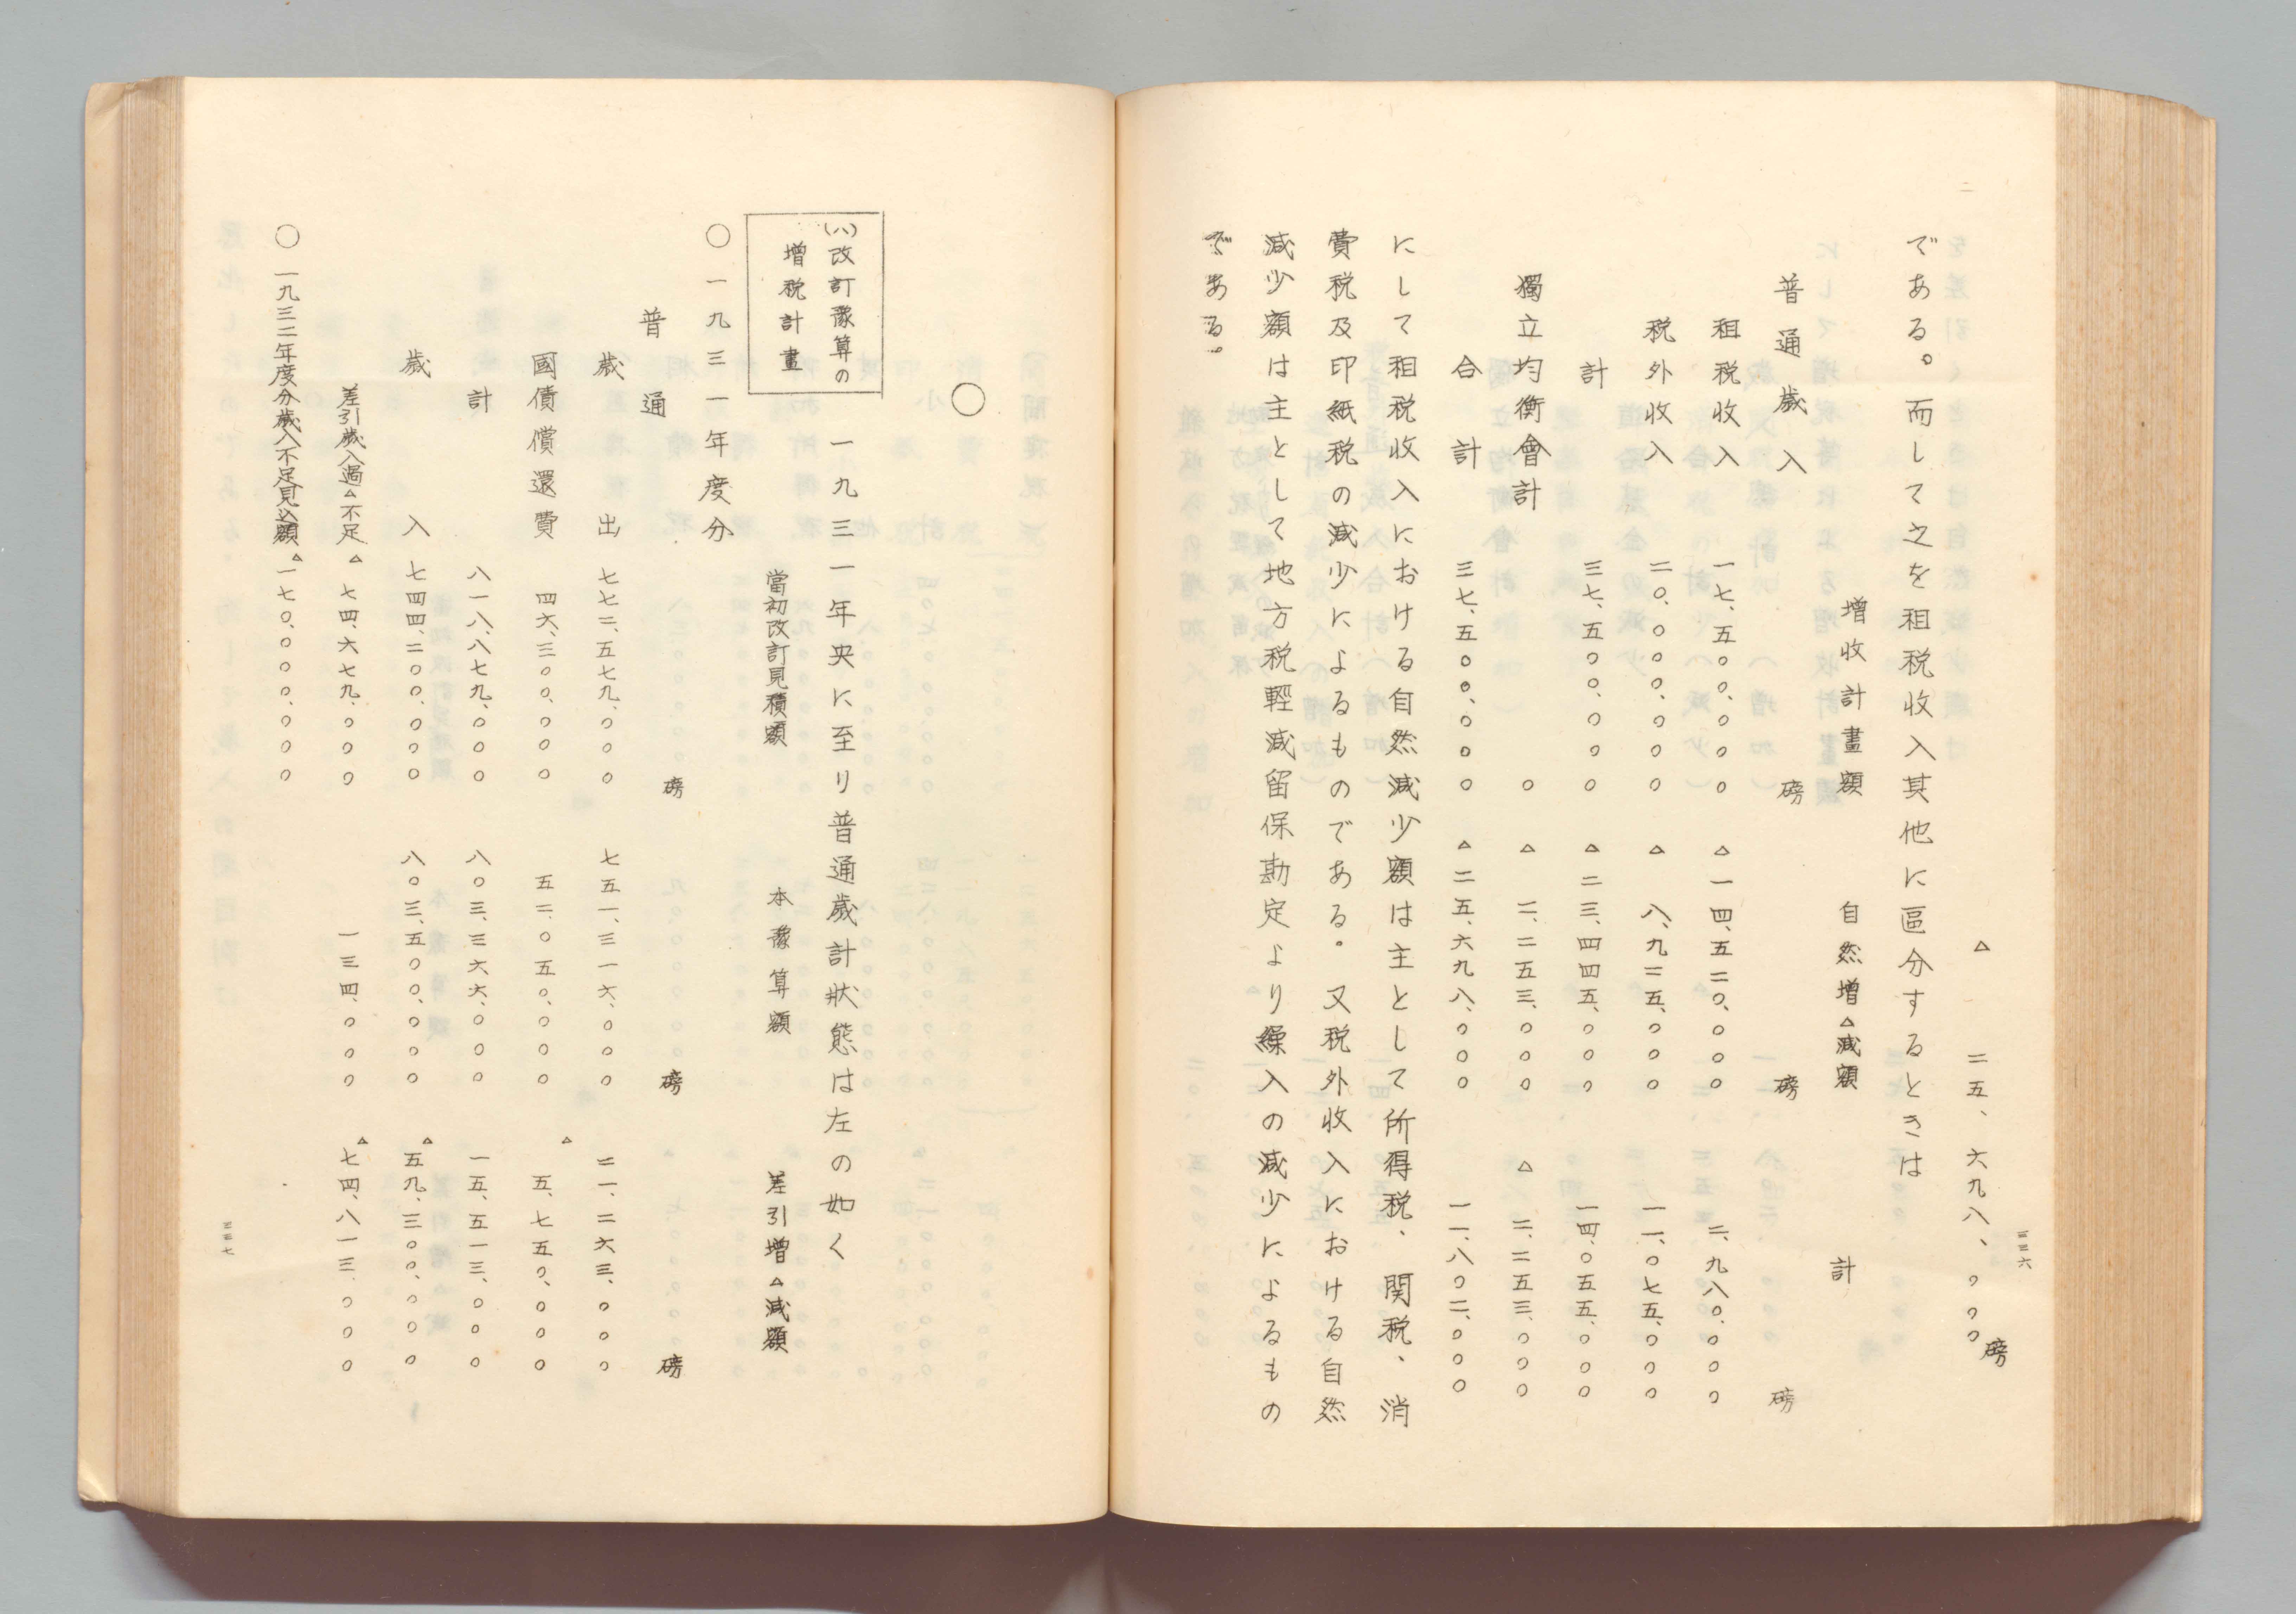 三三六
△　二五、六九八、〇〇〇磅
である。而して之を租税收入其他に區分するときは
增收計畫額　自然增△減額　計
普通歳入　磅　磅　磅
租税收入　一七、五〇〇、〇〇〇　△一四、五二〇、〇〇〇　二、九八〇、〇〇〇
税外收入　二〇、〇〇〇、〇〇〇　△八、九二五、〇〇〇　一一、〇七五、〇〇〇
計　三七、五〇〇、〇〇〇　△二三、四四五、〇〇〇　一四、〇五五、〇〇〇
獨立均衡會計　〇　△二、二五三、〇〇〇　△二、二五三、〇〇〇
合計　三七、五〇〇、〇〇〇　△二五、六九八、〇〇〇　一一、八〇二、〇〇〇
にして租税收入における自然減少額は主として所得税、関税、消
費税及印紙税の減少によるものである。又税外收入における自然
減少額は主として地方税輕減留保勘定より繰入の減少によるもの
である。
〇
(八)改訂豫算の
增税計畫
一九三一年央に至り普通歳計狀態は左の如く
當初改訂見積額　本豫算額　差引增△減額
〇一九三一年度分
普通　磅　磅　磅
歳出　七七二、五七九、〇〇〇　七五一、三一六、〇〇〇　二一、二六三、〇〇〇
國債償還費　四六、三〇〇、〇〇〇　五二、〇五〇、〇〇〇　△五、七五〇、〇〇〇
計　八一八、八七九、〇〇〇　八〇三、三六六、〇〇〇　一五、五一三、〇〇〇
歳入　七四四、二〇〇、〇〇〇　八〇三、五〇〇、〇〇〇　△五九、三〇〇、〇〇〇
差引歳入過△不足　△七四、六七九、〇〇〇　一三四、〇〇〇　△七四、八一三、〇〇〇
〇一九三二年度分歳入不足見込額　△一七〇、〇〇〇、〇〇〇
三三七